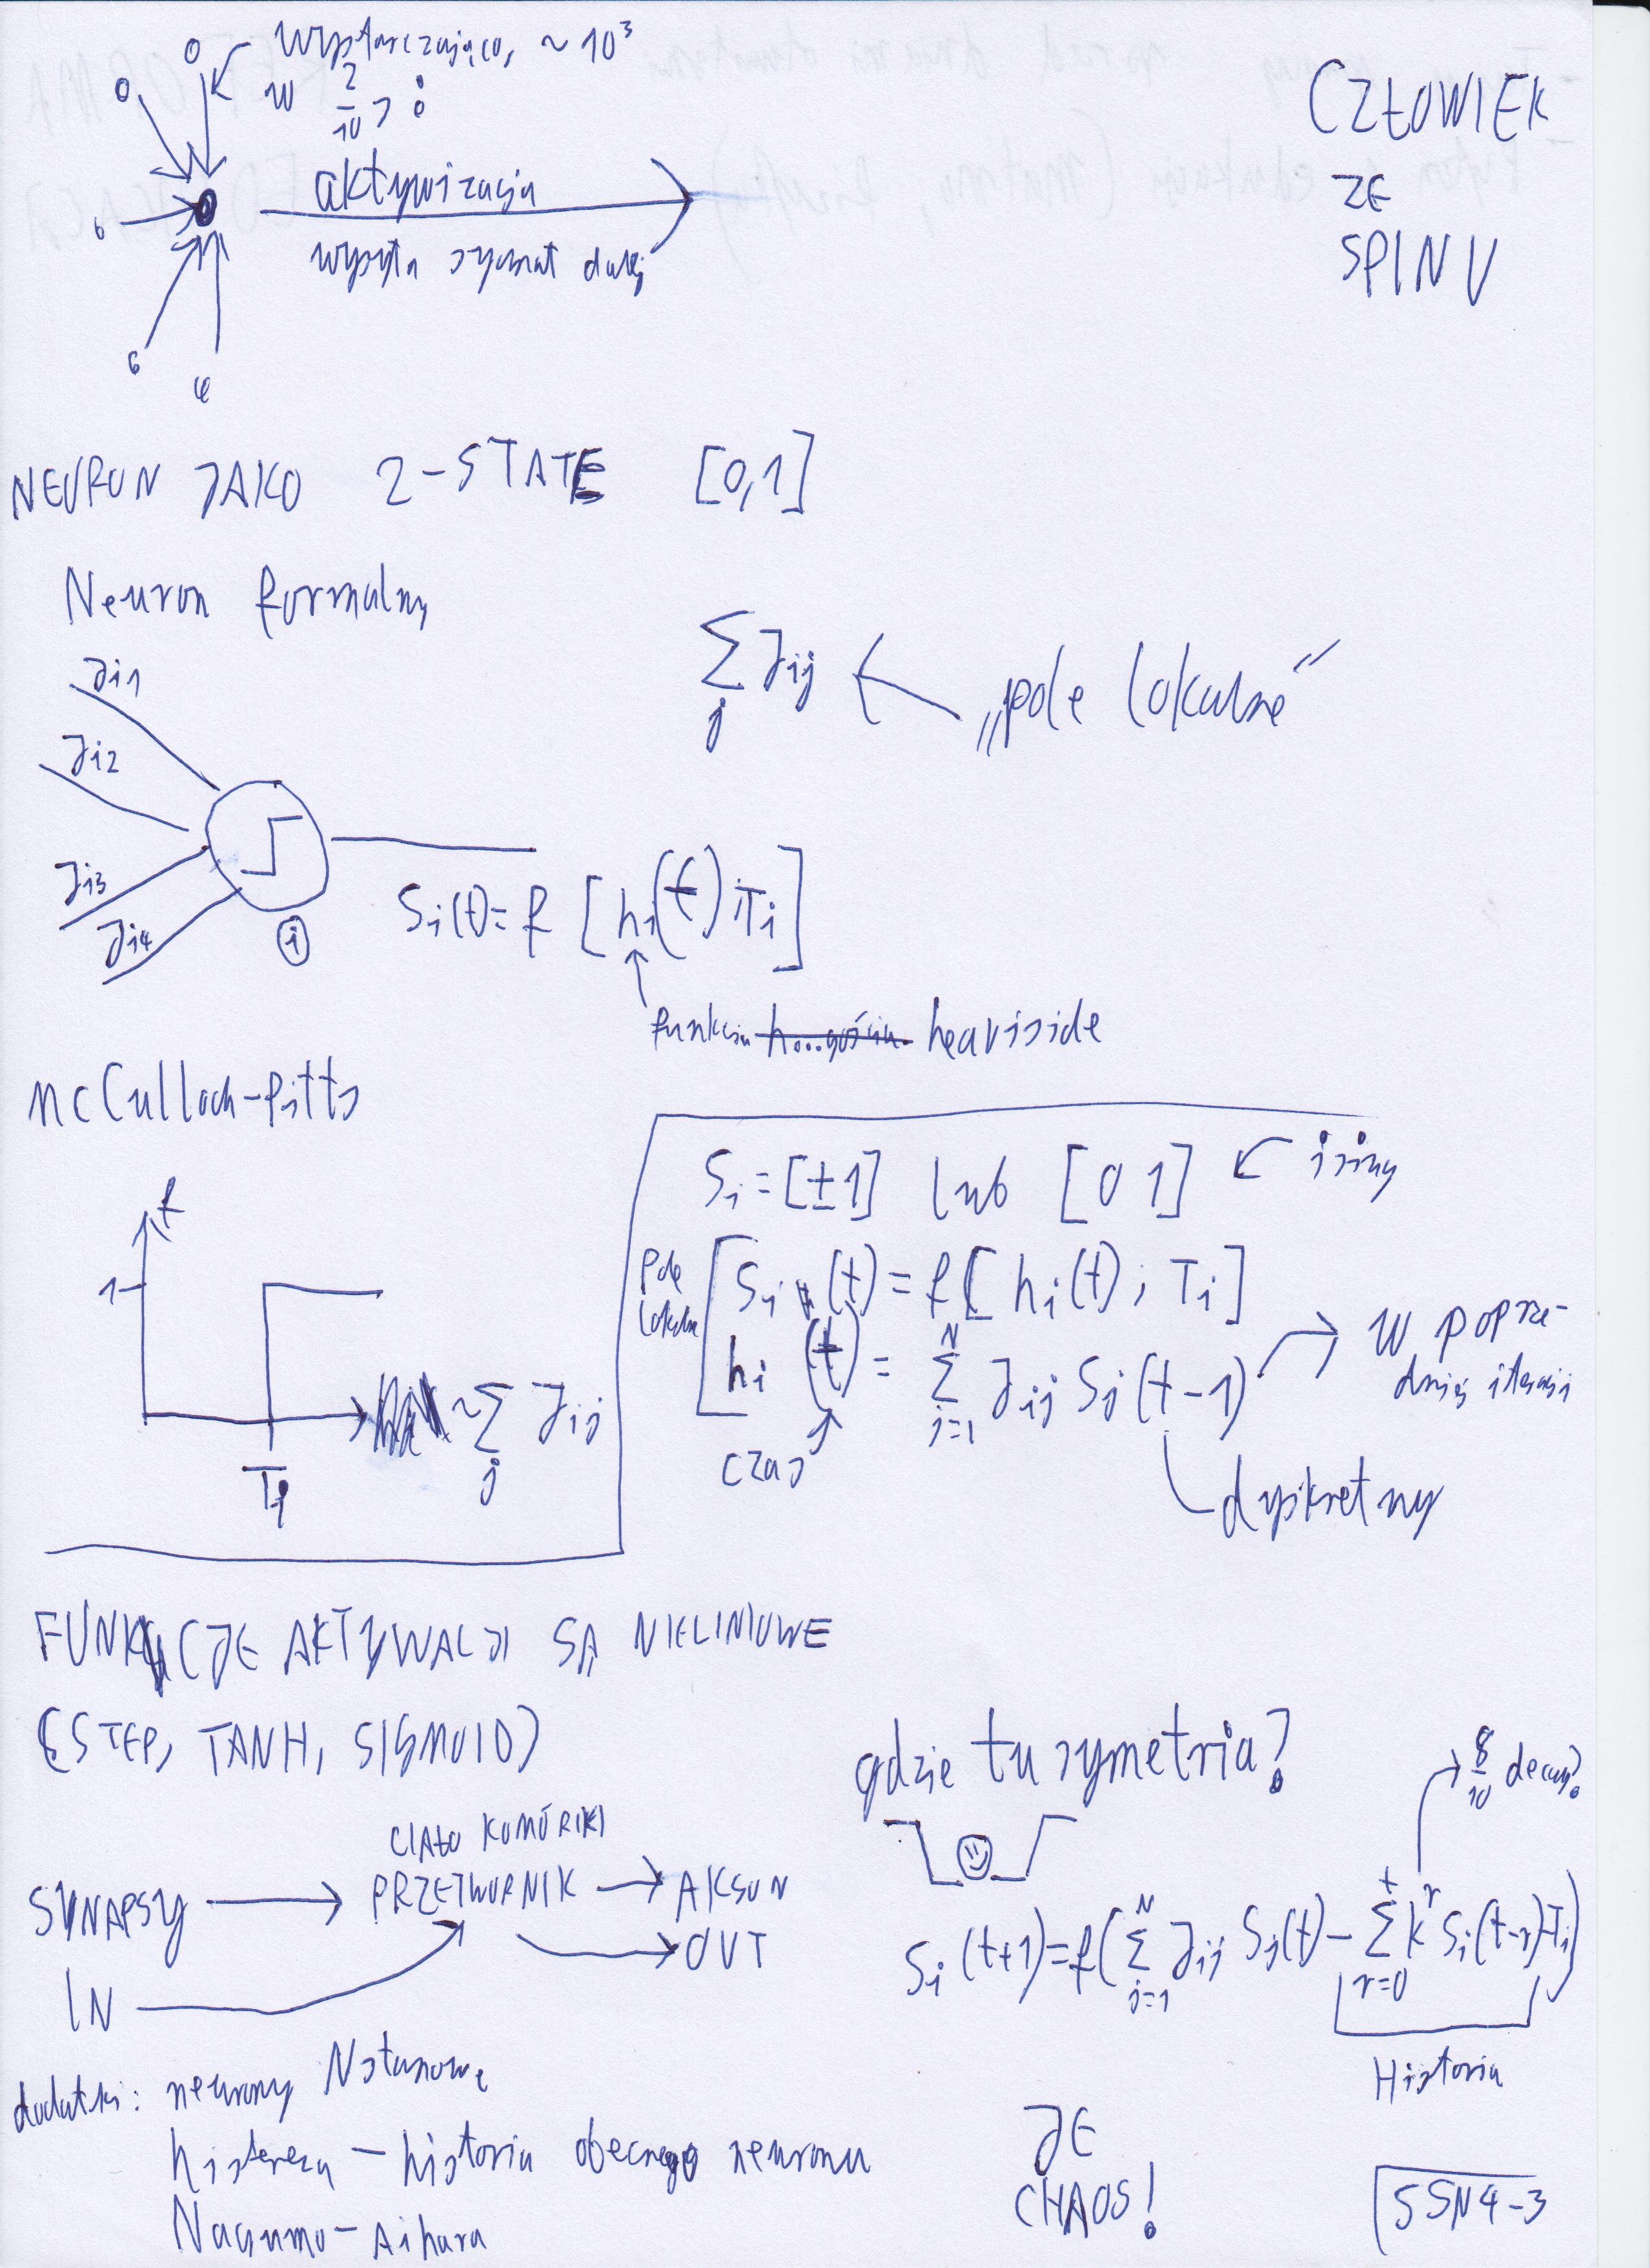 wystarczająco, ~10³
w 2/10 >
aktywizacja
wysyła sygnał dalej
CZŁOWIEK
ZE
SPINU
NEURON JAKO 2-STATE [0,1]
Neuron formalny
∑_j J_ij ← „pole lokalne"
J_i1
J_i2
J_i3
J_i4
i
S_i(t)=f[h_i(t) ; T_i]
funkcja h...gościa. heaviside
McCulloch-Pitts
f
1
T_i
~∑_j J_ij
S_i=[±1] lub [0 1] ← ising
pole lokalne
S_i(t) = f[h_i(t) ; T_i]
h_i(t) = ∑_{j=1}^{N} J_ij S_j(t-1)
w poprze-
dniej iteracji
czas
dyskretny
FUNKCJE AKTYWACJI SĄ NIELINIOWE
(STEP, TANH, SIGMOID)
gdzie tu symetria?
8/10 decay?
CIAŁO KOMÓRKI
SYNAPSY → PRZETWORNIK → AKSON
IN
OUT
S_i(t+1)=f(∑_{j=1}^{N} J_ij S_j(t) - ∑_{r=0}^{t} k^r S_i(t-r)-T_i)
Historia
dodatki: neurony Nstanowe
histereza – historia obecnego neuronu
Nagumo-Aihara
JE
CHAOS!
SSN4-3